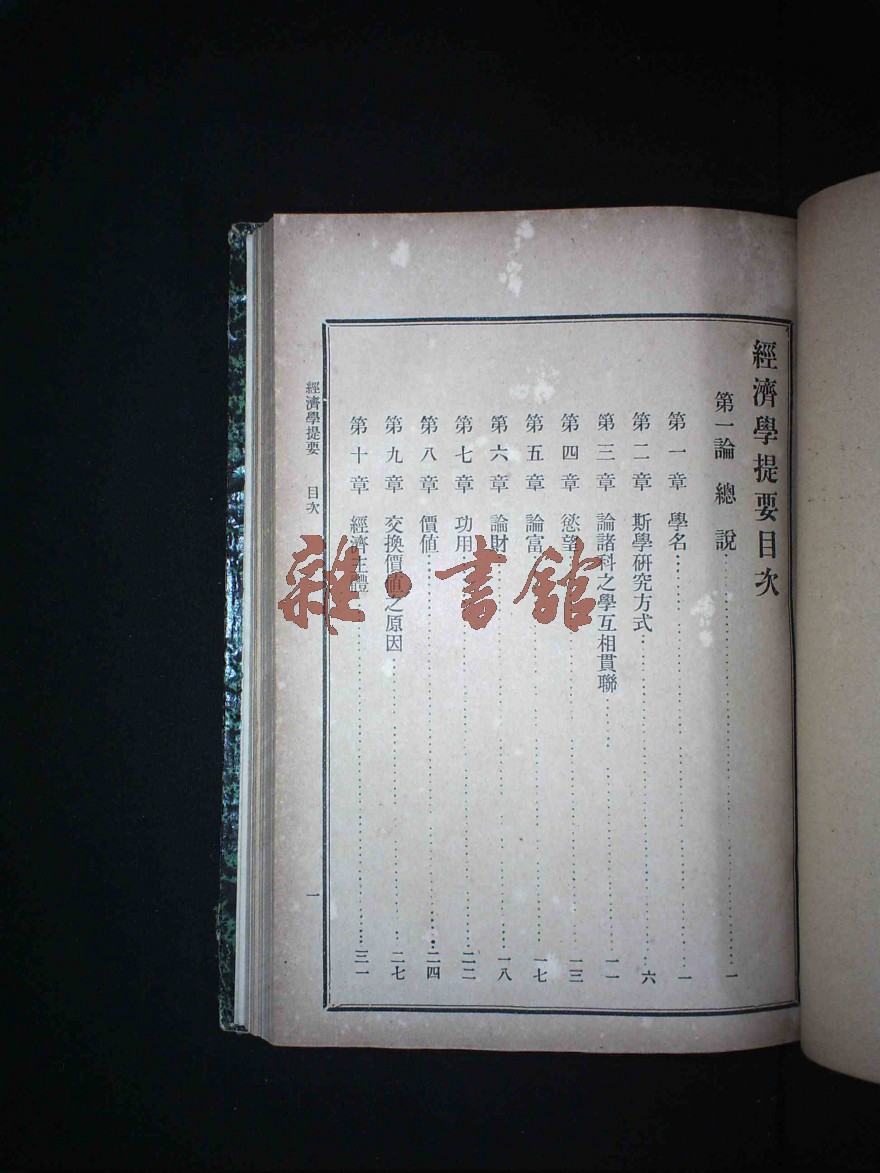 經濟學提要目次
第一論 總說……一
第一章 學名……一
第二章 斯學研究方式……六
第三章 論諸科之學互相貫聯……一一
第四章 慾望……一三
第五章 論富……一七
第六章 論財……一八
第七章 功用……二二
第八章 價值……二四
第九章 交換價值之原因……二七
第十章 經濟主體……三一
經濟學提要 目次
一
雜·書館